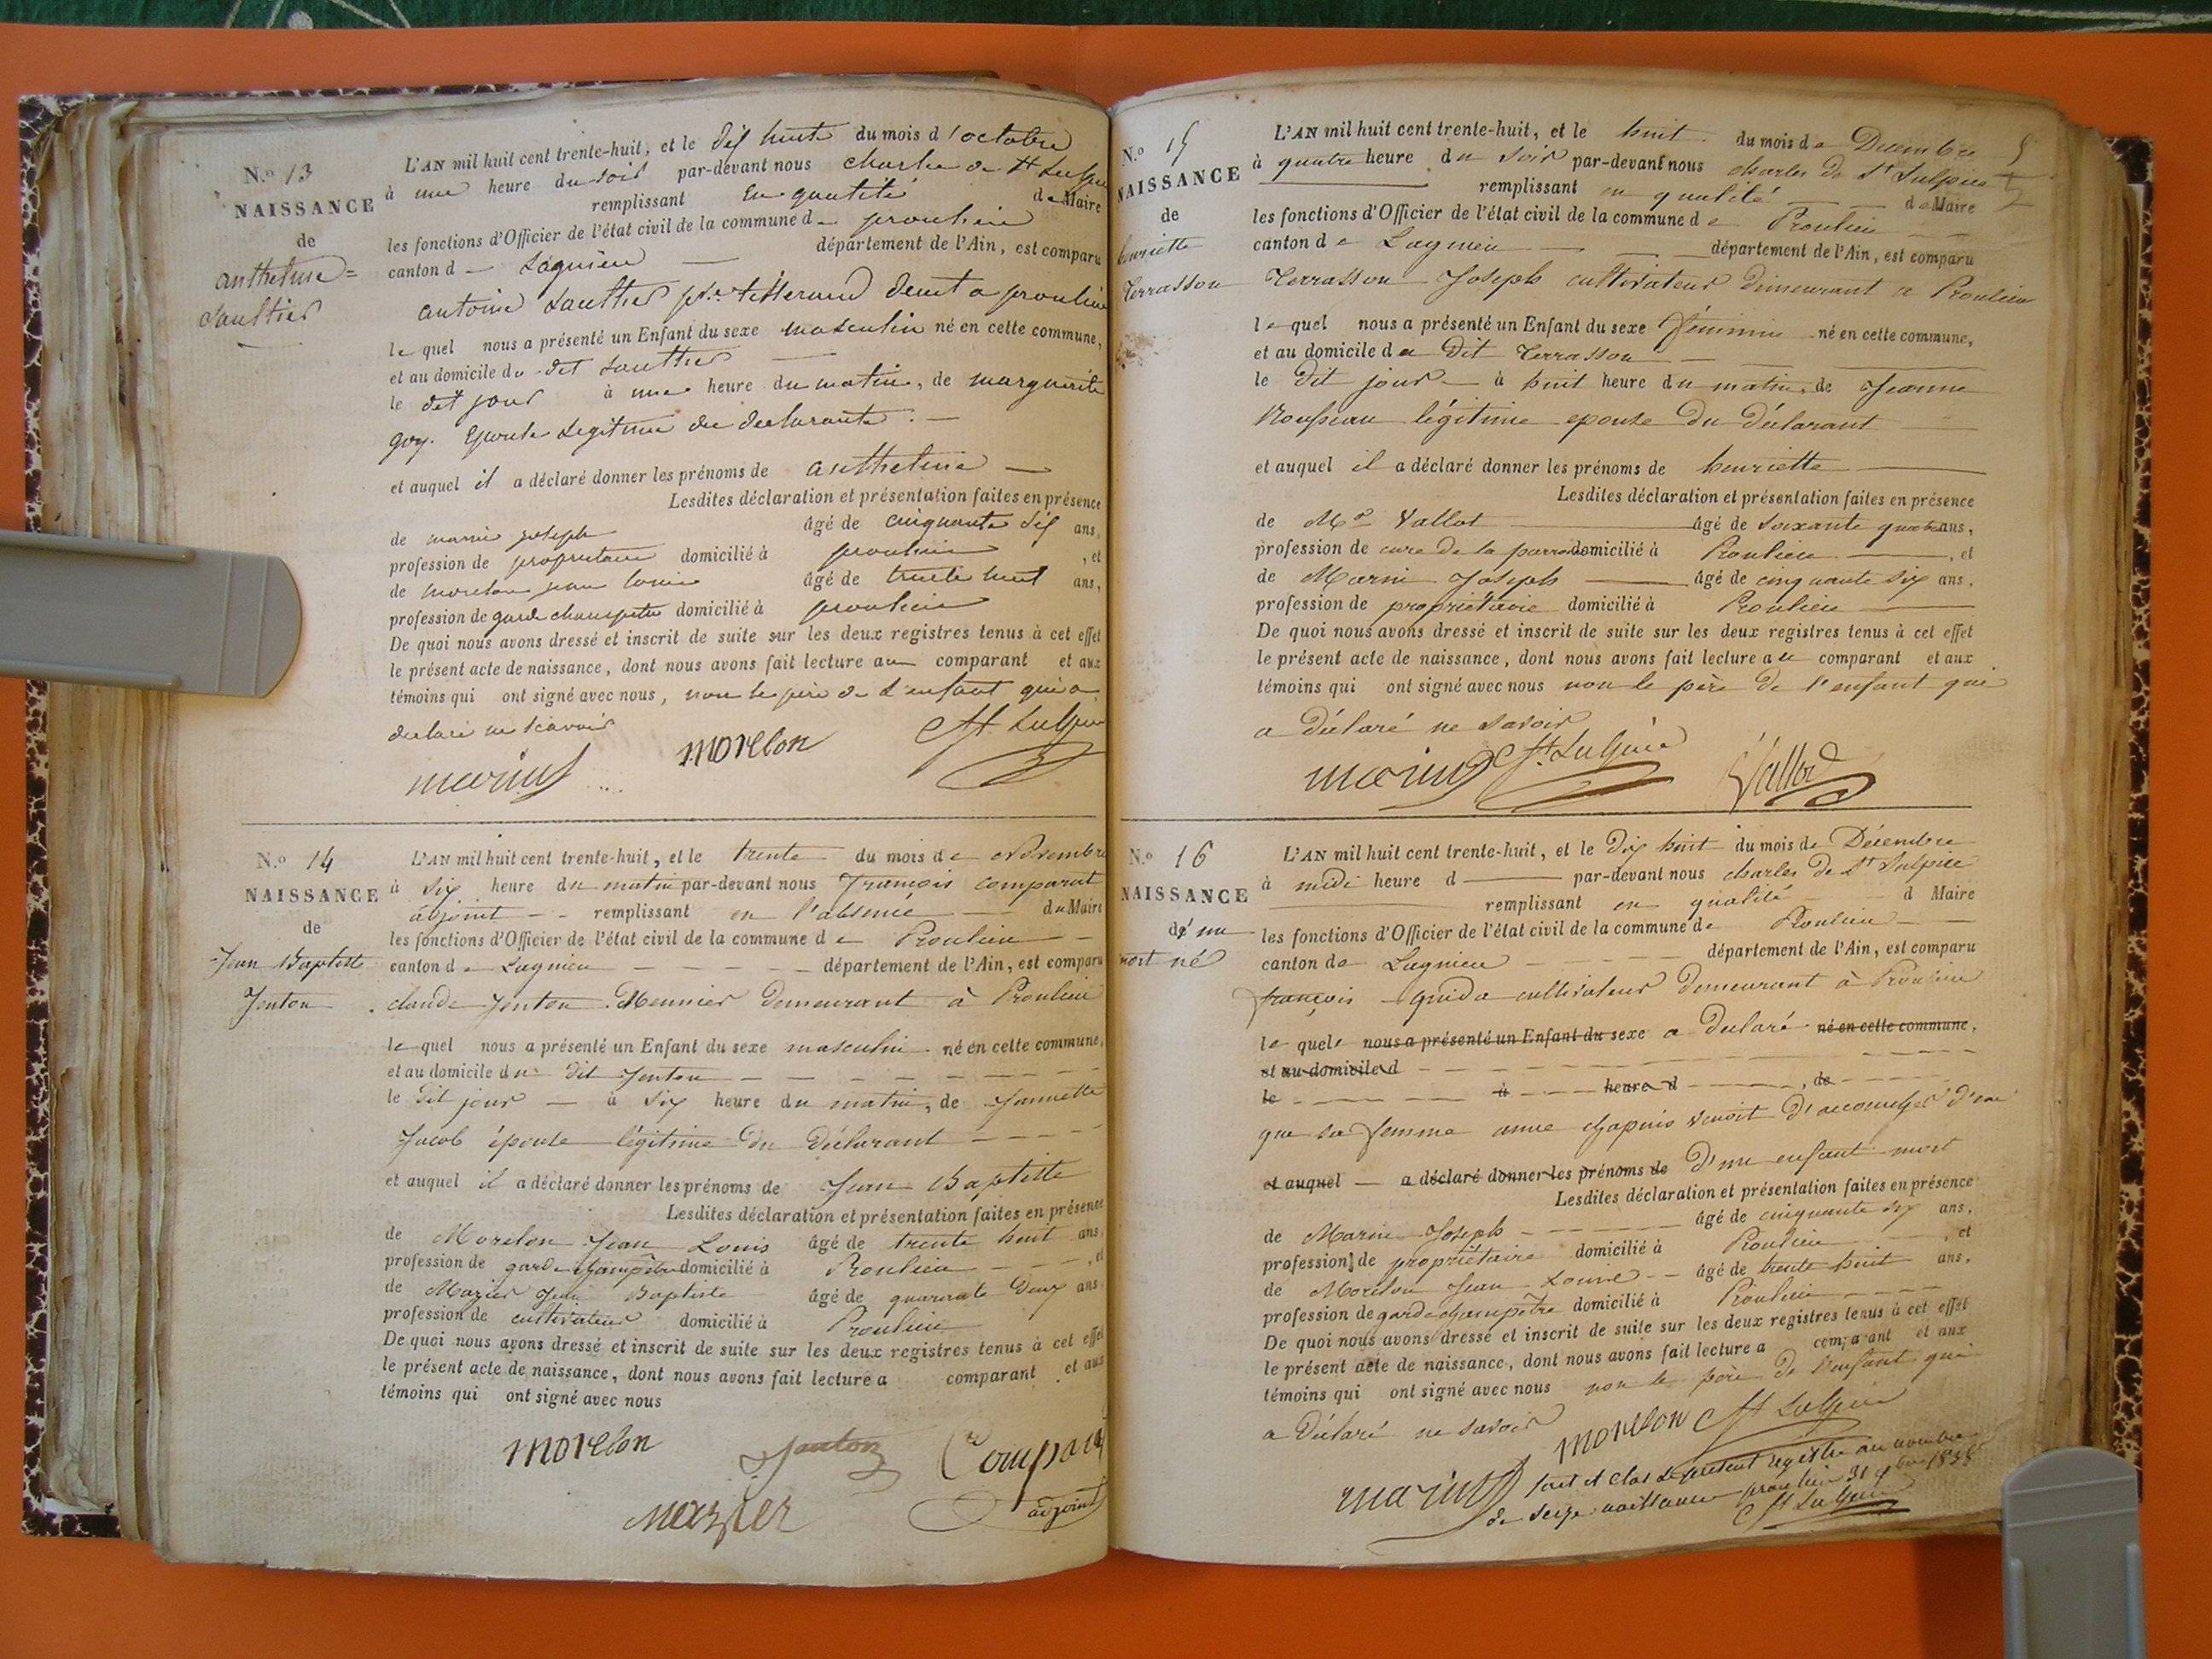 N.o 13
NAISSANCE
de
anthelme =
Sauthier
L'AN mil huit cent trente-huit, et le dix huit du mois d'octobre
à une heure du soir par-devant nous charles de St Sulpice
remplissant en qualité de Maire
les fonctions d'Officier de l'état civil de la commune de proulieu
canton d Lagnieu département de l'Ain, est comparu
antoine Sauthier tisserand demt a proulieu
le quel nous a présenté un Enfant du sexe masculin né en cette commune,
et au domicile du dit Sauthier
le dit jour à une heure du matin, de marguerite
goy. Epouse Legitime du declarante
et auquel il a déclaré donner les prénoms de anthelme
Lesdites déclaration et présentation faites en présence
de marin joseph âgé de cinquante six ans,
profession de propriétaire domicilié à proulieu, et
de morelon jean louis âgé de trente huit ans,
profession de garde champetre domicilié à proulieu
De quoi nous avons dressé et inscrit de suite sur les deux registres tenus à cet effet
le présent acte de naissance, dont nous avons fait lecture au comparant et aux
témoins qui ont signé avec nous, non le père de l'enfant qui a
declaré ne scavoir
morelon St Sulpice
marin
N.o 14
NAISSANCE
de
Jean Baptiste
Jenton
L'AN mil huit cent trente-huit, et le trente du mois de novembre
à six heure du matin par-devant nous François comparat
adjoint remplissant en l'absence du Maire
les fonctions d'Officier de l'état civil de la commune de Proulieu
canton de Lagnieu département de l'Ain, est comparu
claude Jenton Meunier demeurant à Proulieu
le quel nous a présenté un Enfant du sexe masculin né en cette commune,
et au domicile du dit Jenton
le dit jour à six heure du matin, de Jannette
Jacob épouse légitime du déclarant
et auquel il a déclaré donner les prénoms de Jean Baptiste
Lesdites déclaration et présentation faites en présence
de Morelon Jean Louis âgé de trente huit ans,
profession de garde champêtre domicilié à Proulieu, et
de Mazier Jean Baptiste âgé de quarante deux ans
profession de cultivateur domicilié à Proulieu
De quoi nous avons dressé et inscrit de suite sur les deux registres tenus à cet effet
le présent acte de naissance, dont nous avons fait lecture a comparant et aux
témoins qui ont signé avec nous
morelon Janton Comparat
mazier adjoint
N.o 15
NAISSANCE
de
henriette
Terrasson
L'AN mil huit cent trente-huit, et le huit du mois de Decembre
à quatre heure du soir par-devant nous charles de St Sulpice
remplissant en qualité de Maire
les fonctions d'Officier de l'état civil de la commune de Proulieu
canton de Lagnieu département de l'Ain, est comparu
Terrasson Joseph cultivateur dimeurant a Proulieu
le quel nous a présenté un Enfant du sexe féminin né en cette commune,
et au domicile du Dit Terrasson
le Dit jour à huit heure du matin, de Jeanne
Rousseau légitime epouse Du Déclarant
et auquel il a déclaré donner les prénoms de henriette
Lesdites déclaration et présentation faites en présence
de Mr Vallot âgé de soixante quatre ans,
profession de cure de la domicilié à Proulieu, et
de Marin Joseph âgé de cinquante six ans,
profession de propriétaire domicilié à Proulieu
De quoi nous avons dressé et inscrit de suite sur les deux registres tenus à cet effet
le présent acte de naissance, dont nous avons fait lecture au comparant et aux
témoins qui ont signé avec nous non le père de l'enfant qui
a Déclaré ne savoir
marin St Sulpice Vallod
N.o 16
NAISSANCE
d'un
mort né
L'AN mil huit cent trente-huit, et le Dix huit du mois de Décembre
à midi heure d par-devant nous charles De St Sulpice
remplissant en qualité d Maire
les fonctions d'Officier de l'état civil de la commune de Proulieu
canton de Lagnieu département de l'Ain, est comparu
françois quida cultivateur Demeurant à Proulieu
le quel nous a présenté un Enfant du sexe a Declaré né en cette commune,
et au domicile d
le à heure d, de
que sa femme anne chapuis venoit D'accoucher D'un
et auquel a déclaré donner les prénoms de D'un enfant mort
Lesdites déclaration et présentation faites en présence
de Marin Joseph âgé de cinquante six ans,
profession de propriétaire domicilié à Proulieu, et
de Morelon Jean Louis âgé de trente huit ans,
profession de garde champêtre domicilié à Proulieu
De quoi nous avons dressé et inscrit de suite sur les deux registres tenus à cet effet
le présent acte de naissance, dont nous avons fait lecture a comparant et aux
témoins qui ont signé avec nous non le père De l'enfant qui
a Déclaré ne savoir
morelon St Sulpice
marin
fait et clos le present registre au nombre
de seize naissance proulieu 31 xbre 1838
St Sulpice